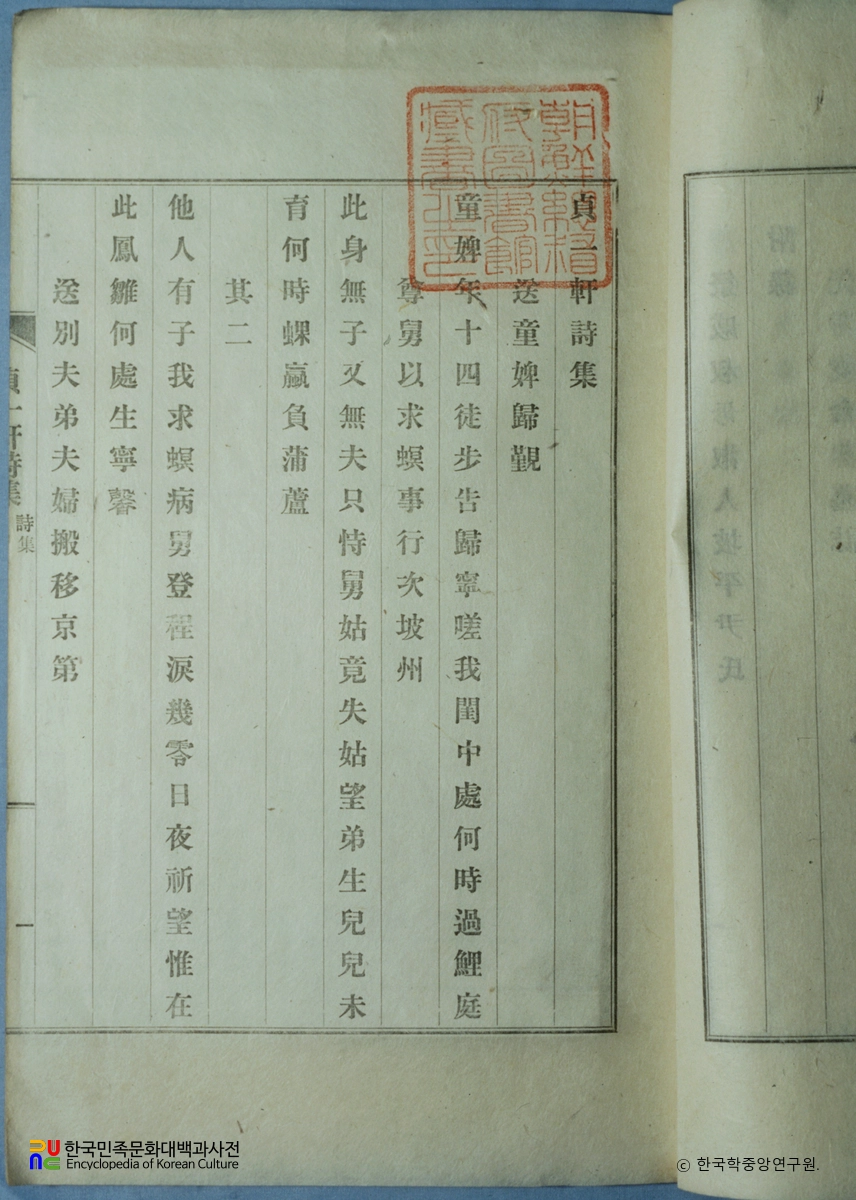 貞一軒詩集
送童婢歸覲
童婢年十四徒步告歸寧嗟我閨中處何時過鯉庭
尊舅以求螟事行次坡州
此身無子又無夫只恃舅姑竟失姑望弟生兒兒未
育何時蜾蠃負蒲蘆
其二
他人有子我求螟病舅登程淚幾零日夜祈望惟在
此鳳雛何處生寧馨
送別夫弟夫婦搬移京第
貞一軒詩集 詩集
朝鮮總督
府圖書館
藏書之印
한국민족문화대백과사전
Encyclopedia of Korean Culture
© 한국학중앙연구원.